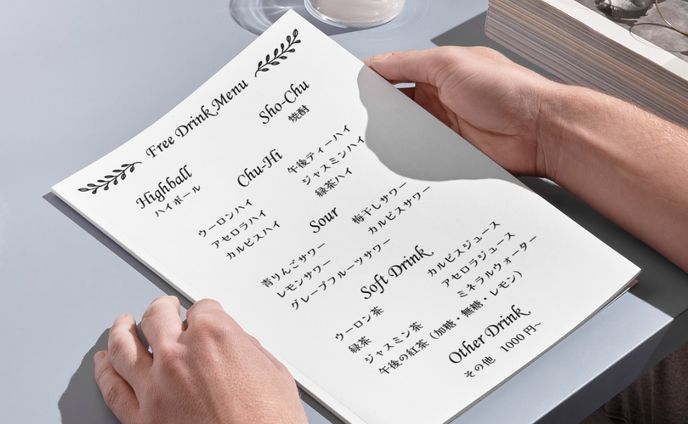 Free Drink Menu
Highball
ハイボール
Sho-Chu
焼酎
Chu-Hi
ウーロンハイ
アセロラハイ
カルピスハイ
午後ティーハイ
ジャスミンハイ
緑茶ハイ
Sour
青りんごサワー
レモンサワー
グレープフルーツサワー
梅干しサワー
カルピスサワー
Soft Drink
ウーロン茶
緑茶
ジャスミン茶
午後の紅茶（加糖・無糖・レモン）
カルピスジュース
アセロラジュース
ミネラルウォーター
Other Drink
その他 1000円~